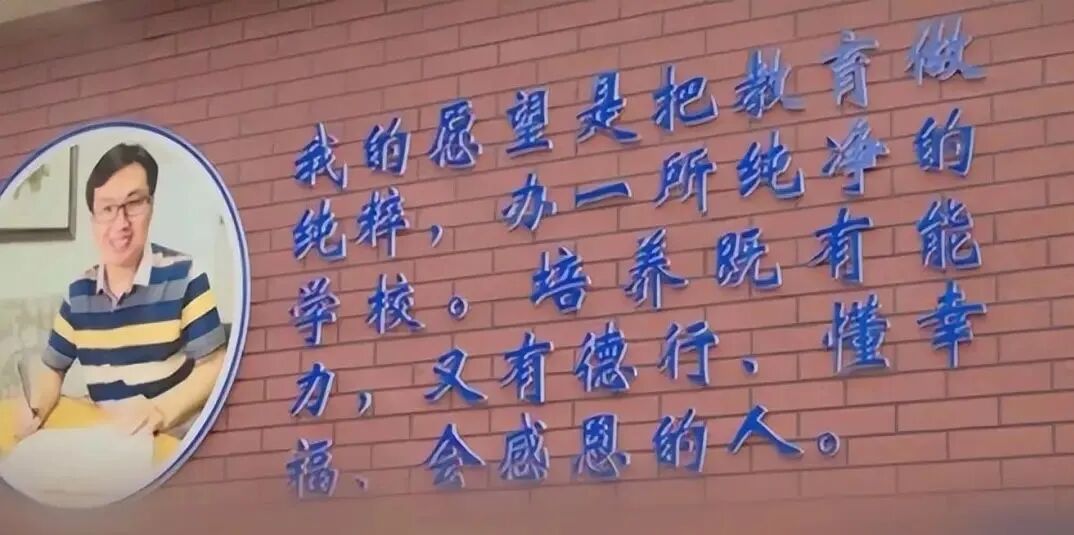 我的愿望是把教育做
纯粹，办一所纯净的
学校。培养既有能
力，又有德行、懂幸
福、会感恩的人。